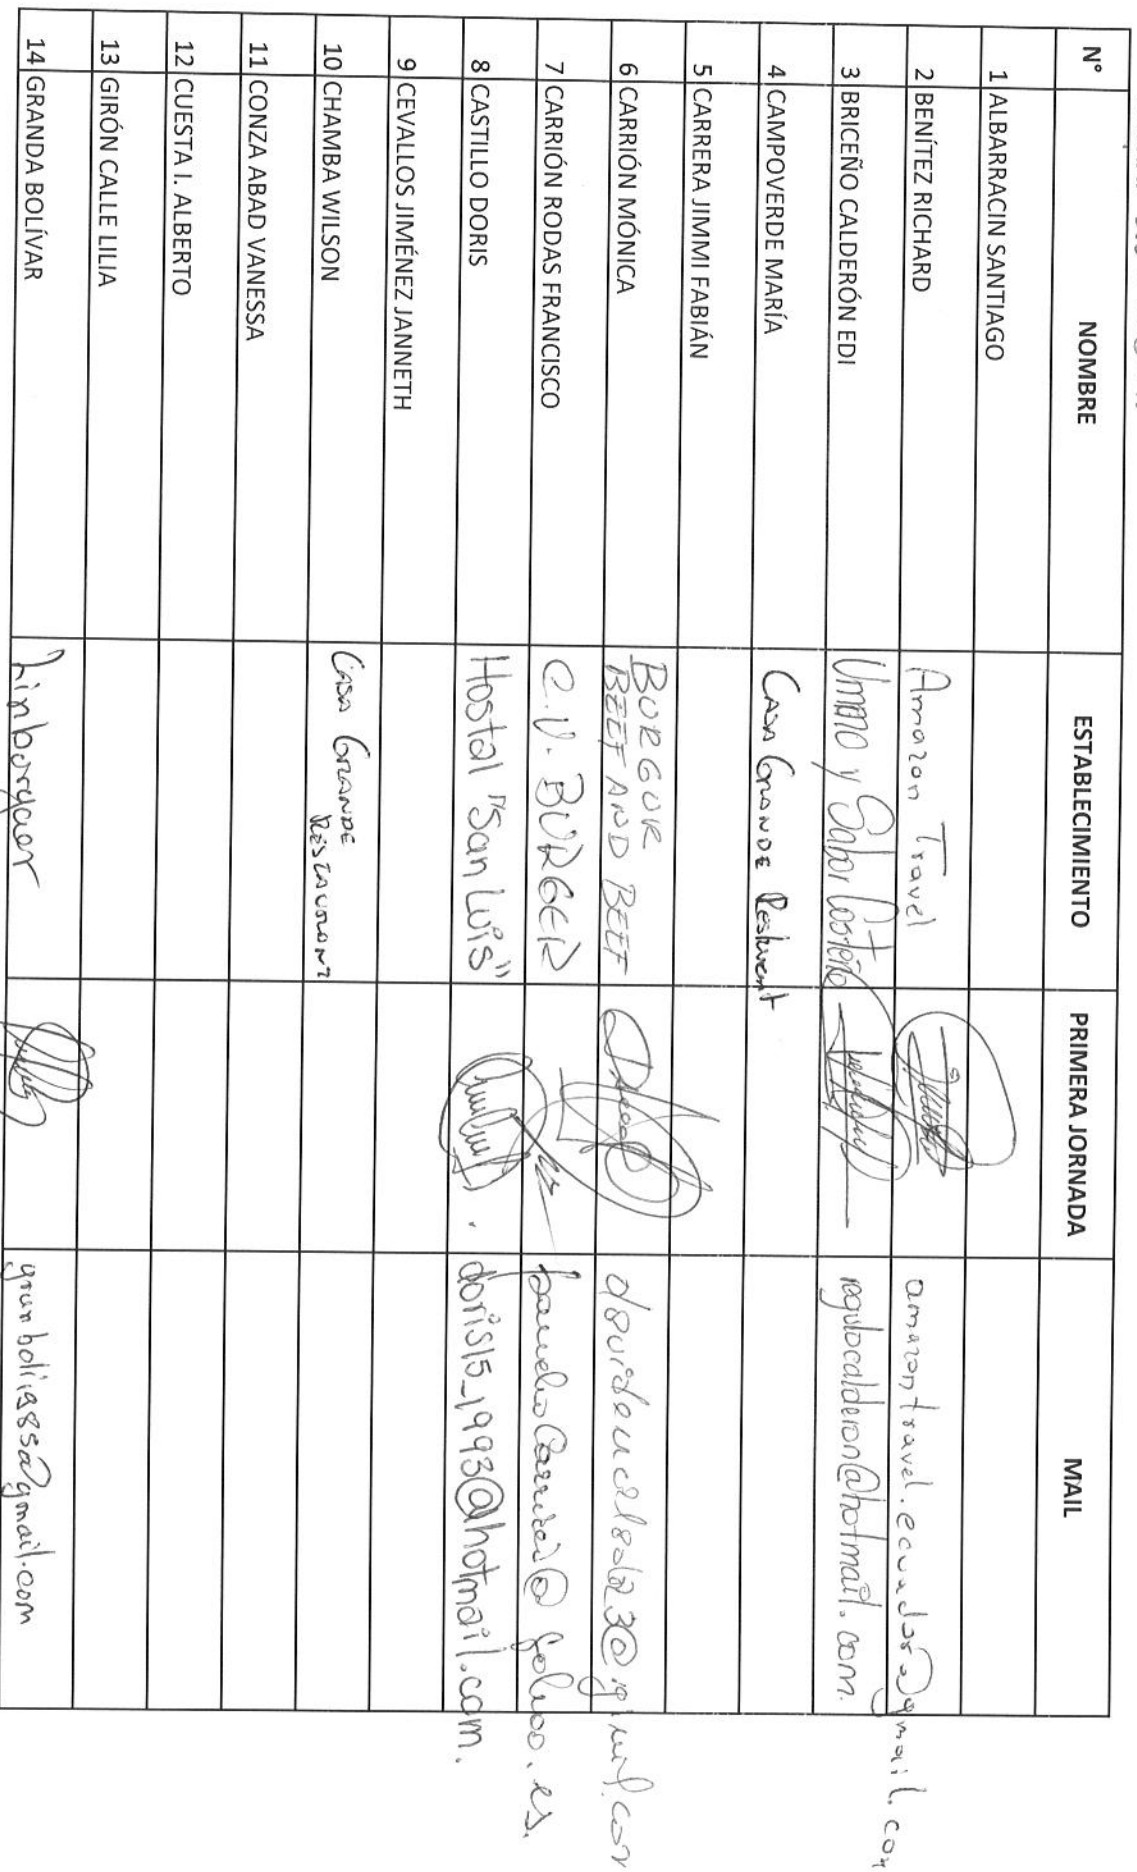 N° NOMBRE ESTABLECIMIENTO PRIMERA JORNADA MAIL
1 ALBARRACIN SANTIAGO
2 BENÍTEZ RICHARD Amazon Travel amazontravel.ecuador@gmail.com
3 BRICEÑO CALDERÓN EDI Umano y Sabor Costeño regulocalderon@hotmail.com.
4 CAMPOVERDE MARÍA CASA GRANDE Restuvent
5 CARRERA JIMMI FABIÁN
6 CARRIÓN MÓNICA BURGUR
BEEF AND BEEF
7 CARRIÓN RODAS FRANCISCO C.V. BURGER
8 CASTILLO DORIS Hostal "San Luis" doris15_1993@hotmail.com.
9 CEVALLOS JIMÉNEZ JANNETH
10 CHAMBA WILSON CASA GRANDE
RESTAURANT
11 CONZA ABAD VANESSA
12 CUESTA I. ALBERTO
13 GIRÓN CALLE LILIA
14 GRANDA BOLÍVAR